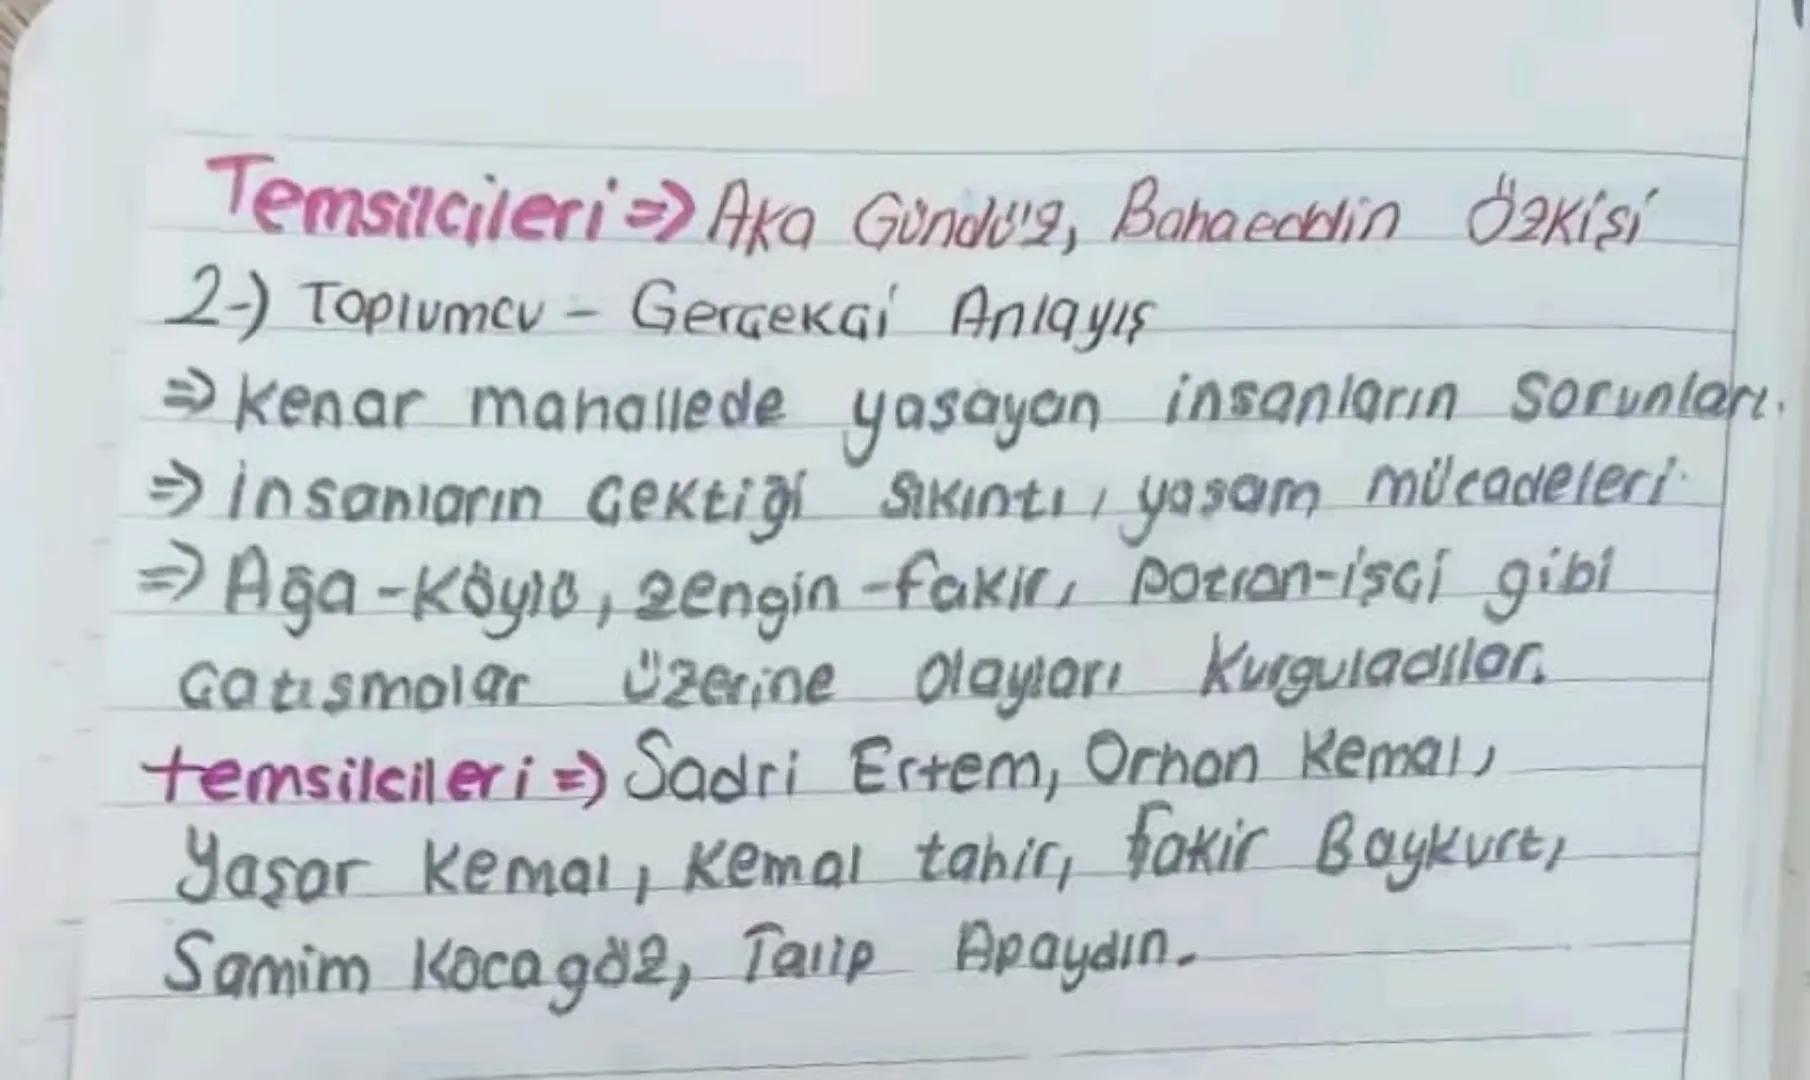 Temsilcileri => Aka Gündüz, Bahaeddin Özkişi
2-) Toplumcu - Gerçekçi Anlayış
=> Kenar mahallede yaşayan insanların sorunları.
=> İnsanların çektiği sıkıntı, yaşam mücadeleleri
=> Ağa-Köylü, zengin-fakir, patron-işçi gibi
çatışmalar üzerine olayları kurguladılar.
temsilcileri => Sadri Ertem, Orhan Kemal,
Yaşar Kemal, Kemal tahir, fakir Baykurt,
Samim Kocagöz, Talip Apaydın.